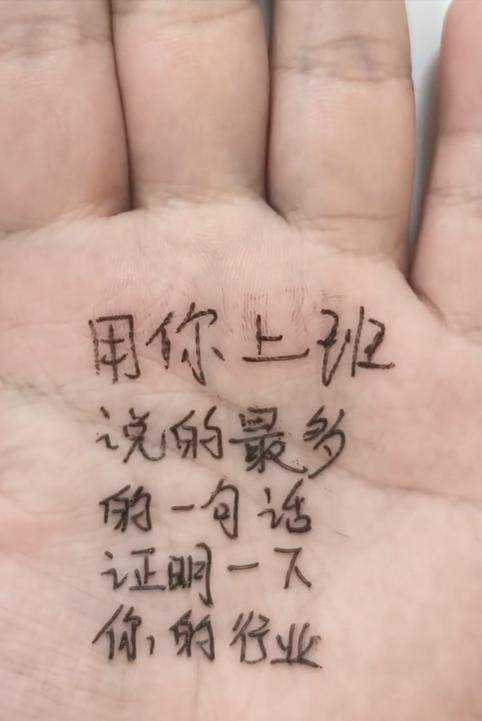 用你上班
说的最多
的一句话
证明一下
你,的行业